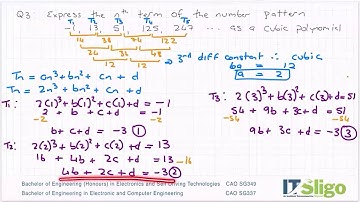 Q3. Express the nth term of the number pattern
T1 T2 T3 T4 T5
-1, 13, 51, 125, 247 ... as a cubic polynomial
14 38 74 122
24 36 48
12 12
3rd diff constant ∴ cubic
6a = 12
a = 2
Tn = an³ + bn² + cn + d
Tn = 2n³ + bn² + cn + d
T1: 2(1)³ + b(1)² + c(1) + d = -1
2 + b + c + d = -1
-2 -2
b + c + d = -3 ①
T2: 2(2)³ + b(2)² + c(2) + d = 13
16 + 4b + 2c + d = 13 -16
4b + 2c + d = -3 ②
T3: 2(3)³ + b(3)² + c(3) + d = 51
54 + 9b + 3c + d = 51
-54 -54
9b + 3c + d = -3 ③
Bachelor of Engineering (Honours) in Electronics and Self Driving Technologies CAO SG349
Bachelor of Engineering in Electronic and Computer Engineering CAO SG337
IT Sligo